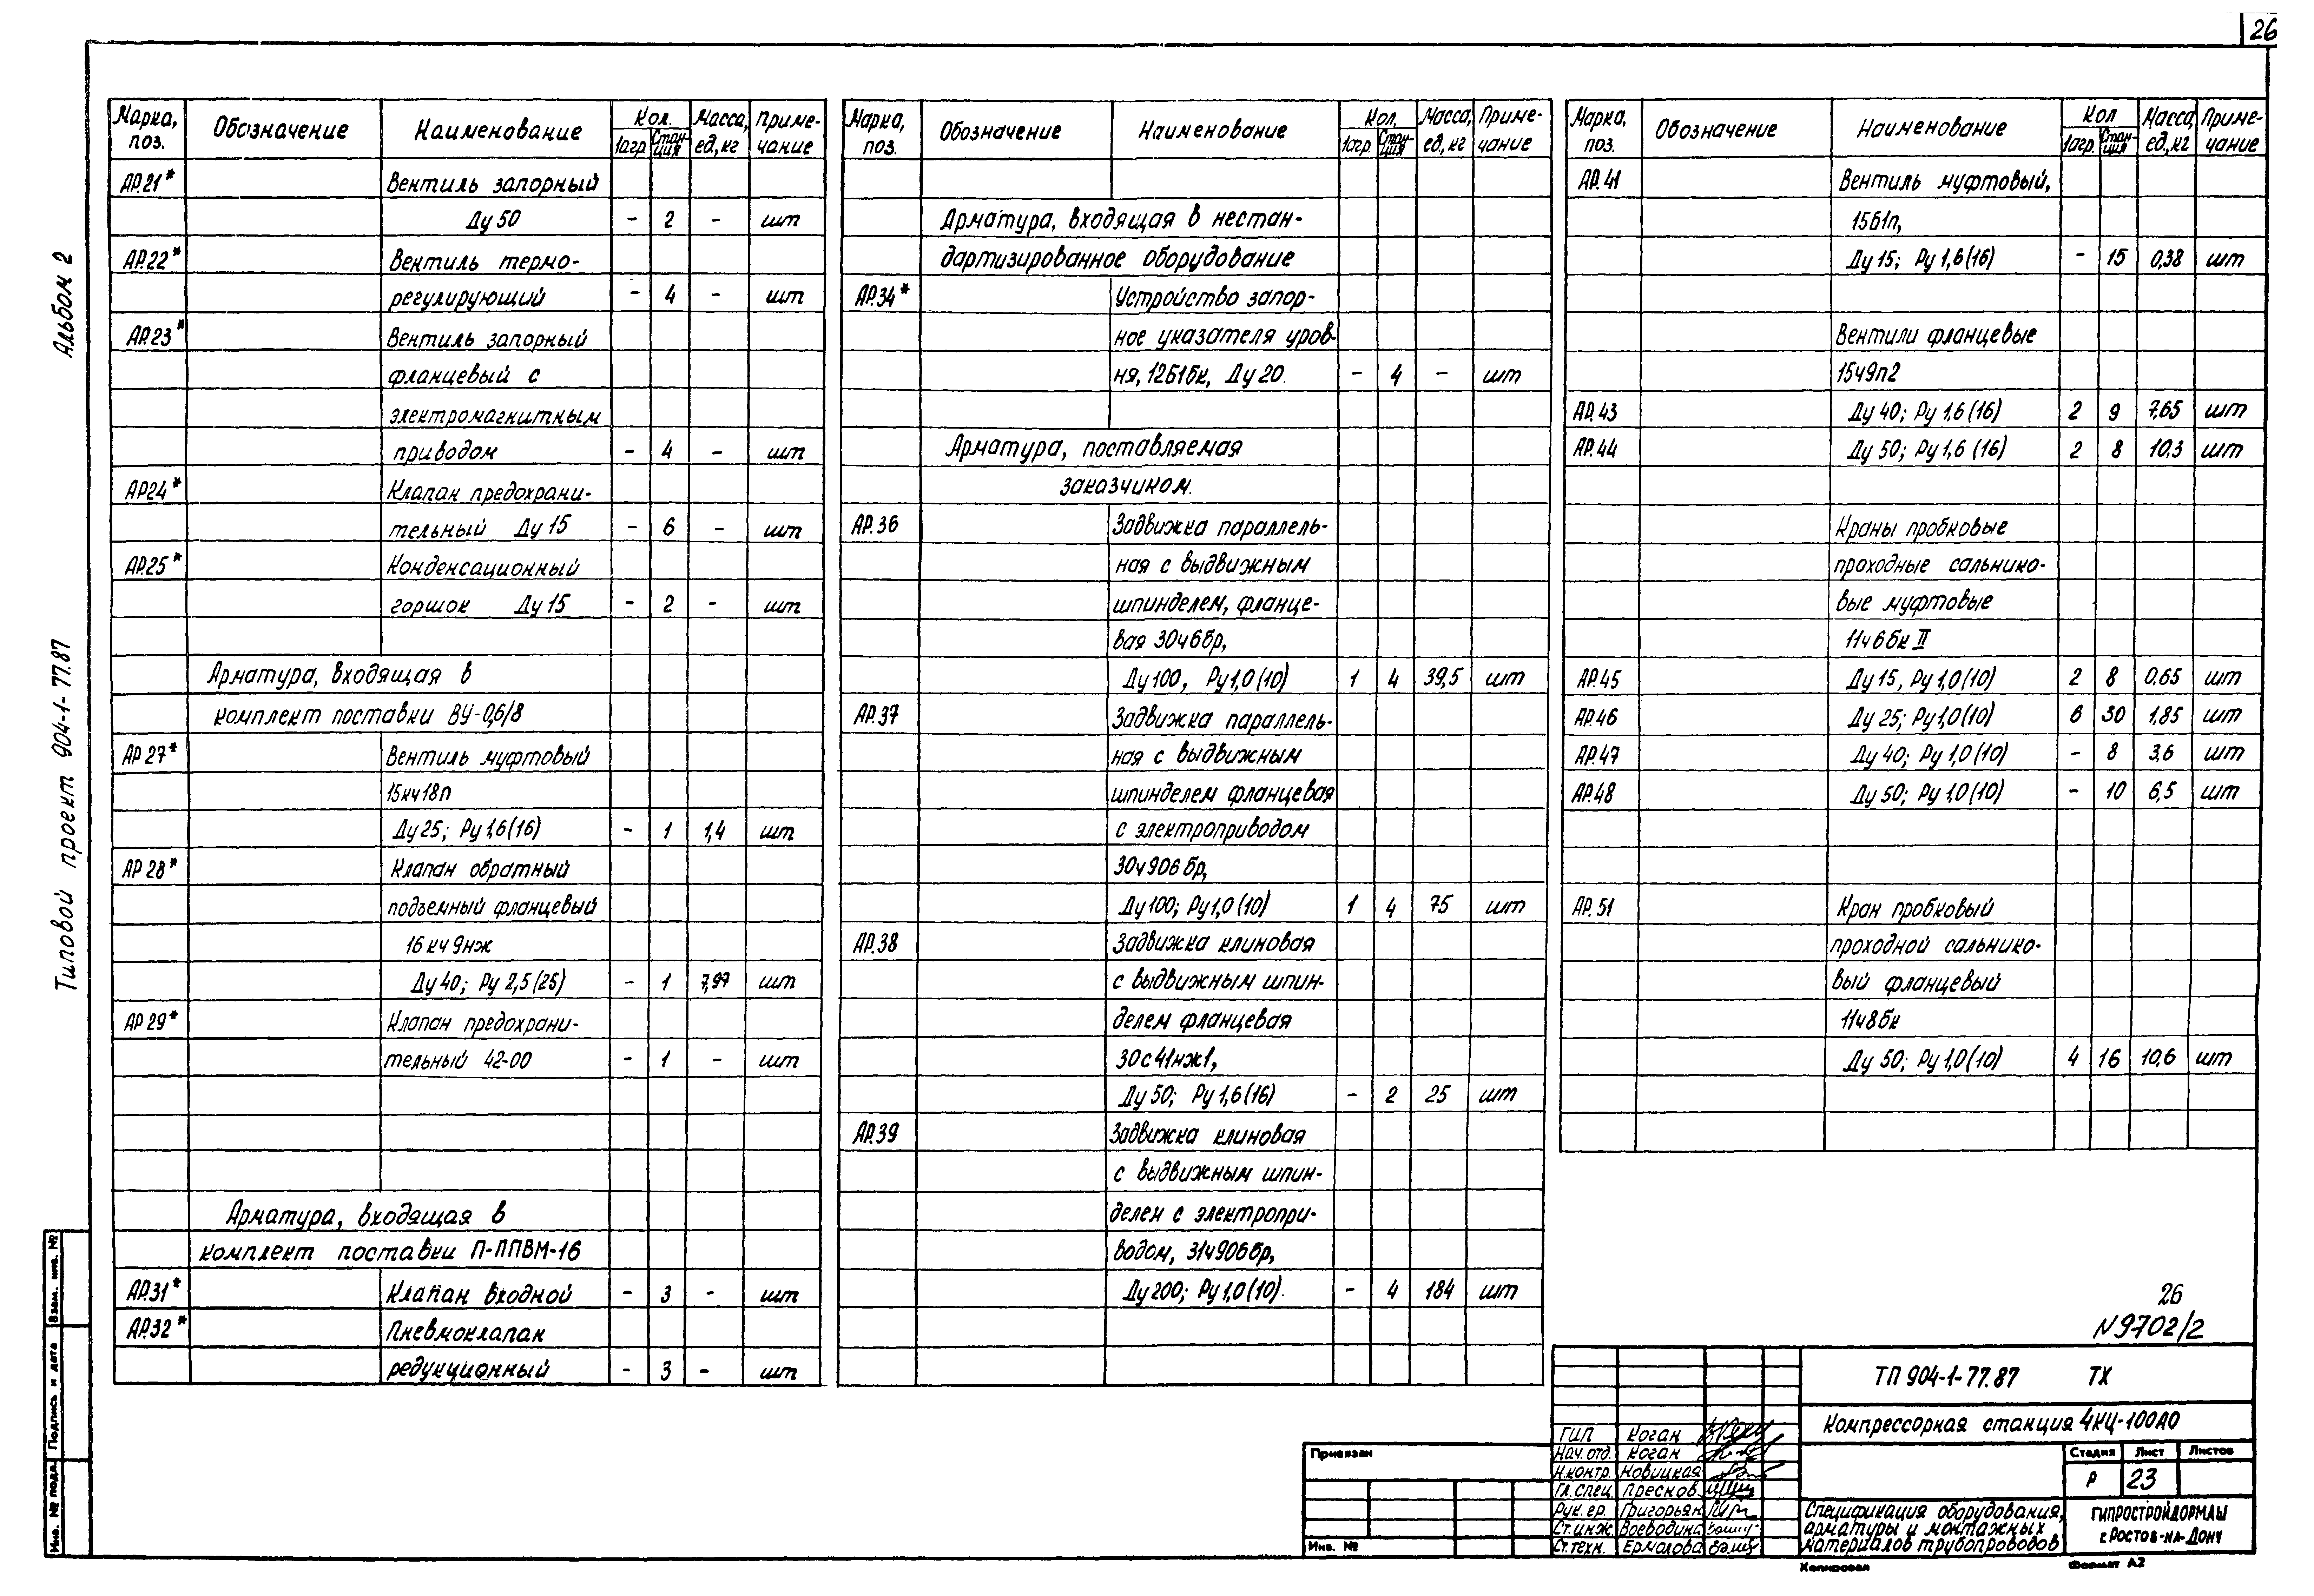 26
Альбом 2
Типовой проект 904-1-77.87
Марка, поз. Обозначение Наименование Кол. 1агр Стан-ция Масса, ед, кг Приме-чание
АР.21* Вентиль запорный
Ду 50 - 2 - шт
АР.22* Вентиль термо-
регулирующий - 4 - шт
АР.23* Вентиль запорный
фланцевый с
электромагнитным
приводом - 4 - шт
АР24* Клапан предохрани-
тельный Ду 15 - 6 - шт
АР.25* Конденсационный
горшок Ду 15 - 2 - шт
Арматура, входящая в
комплект поставки ВУ-0,6/8
АР 27* Вентиль муфтовый
15кч18п
Ду 25; Ру 1,6(16) - 1 1,4 шт
АР 28* Клапан обратный
подъемный фланцевый
16 кч 9нж
Ду 40; Ру 2,5(25) - 1 7,97 шт
АР 29* Клапан предохрани-
тельный 42-00 - 1 - шт
Арматура, входящая в
комплект поставки П-ППВМ-16
АР.31* Клапан входной - 3 - шт
АР.32* Пневмоклапан
редукционный - 3 - шт
Марка, поз. Обозначение Наименование Кол. 1агр. Стан-ция Масса, ед, кг Приме-чание
Арматура, входящая в нестан-
дартизированное оборудование
АР.34* Устройство запор-
ное указателя уров-
ня, 12Б1бк, Ду 20. - 4 - шт
Арматура, поставляемая
заказчиком.
АР.36 Задвижка параллель-
ная с выдвижным
шпинделем, фланце-
вая 30ч6бр,
Ду 100, Ру 1,0(10) 1 4 39,5 шт
АР.37 Задвижка параллель-
ная с выдвижным
шпинделем фланцевая
с электроприводом
30ч906 бр,
Ду 100; Ру 1,0(10) 1 4 75 шт
АР.38 Задвижка клиновая
с выдвижным шпин-
делем фланцевая
30с41нж1,
Ду 50; Ру 1,6(16) - 2 25 шт
АР.39 Задвижка клиновая
с выдвижным шпин-
делем с электропри-
водом, 31ч906бр,
Ду 200; Ру 1,0(10). - 4 184 шт
Марка, поз. Обозначение Наименование Кол 1агр. Стан-ция Масса, ед., кг Приме-чание
АР.41 Вентиль муфтовый,
15б1п,
Ду 15; Ру 1,6(16) - 15 0,38 шт
Вентили фланцевые
15ч9п2
АР.43 Ду 40; Ру 1,6(16) 2 9 7,65 шт
АР.44 Ду 50; Ру 1,6 (16) 2 8 10,3 шт
Краны пробковые
проходные сальнико-
вые муфтовые
11ч6бк II
АР.45 Ду 15, Ру 1,0(10) 2 8 0,65 шт
АР.46 Ду 25; Ру 1,0(10) 6 30 1,85 шт
АР.47 Ду 40; Ру 1,0(10) - 8 3,6 шт
АР.48 Ду 50; Ру 1,0(10) - 10 6,5 шт
АР.51 Кран пробковый
проходной сальнико-
вый фланцевый
11ч8бк
Ду 50; Ру 1,0(10) 4 16 10,6 шт
26
N9702/2
ТП 904-1-77.87 ТХ
Компрессорная станция 4КЦ-100АО
ГИП Коган
Нач. отд. Коган
Н.контр. Новицкая
Гл. спец. Преснов
Рук. гр. Григорьян
Ст. инж. Воеводина
Ст. техн. Ермалова
Стадия Лист Листов
Р 23
Спецификация оборудования,
арматуры и монтажных
материалов трубопроводов
ГИПРОСТРОЙДОРМАШ
г. Ростов-на-Дону
Привязан
Инв. №
Копировал Формат А2
Взам. инв. №
Подпись и дата
Инв. № подл.